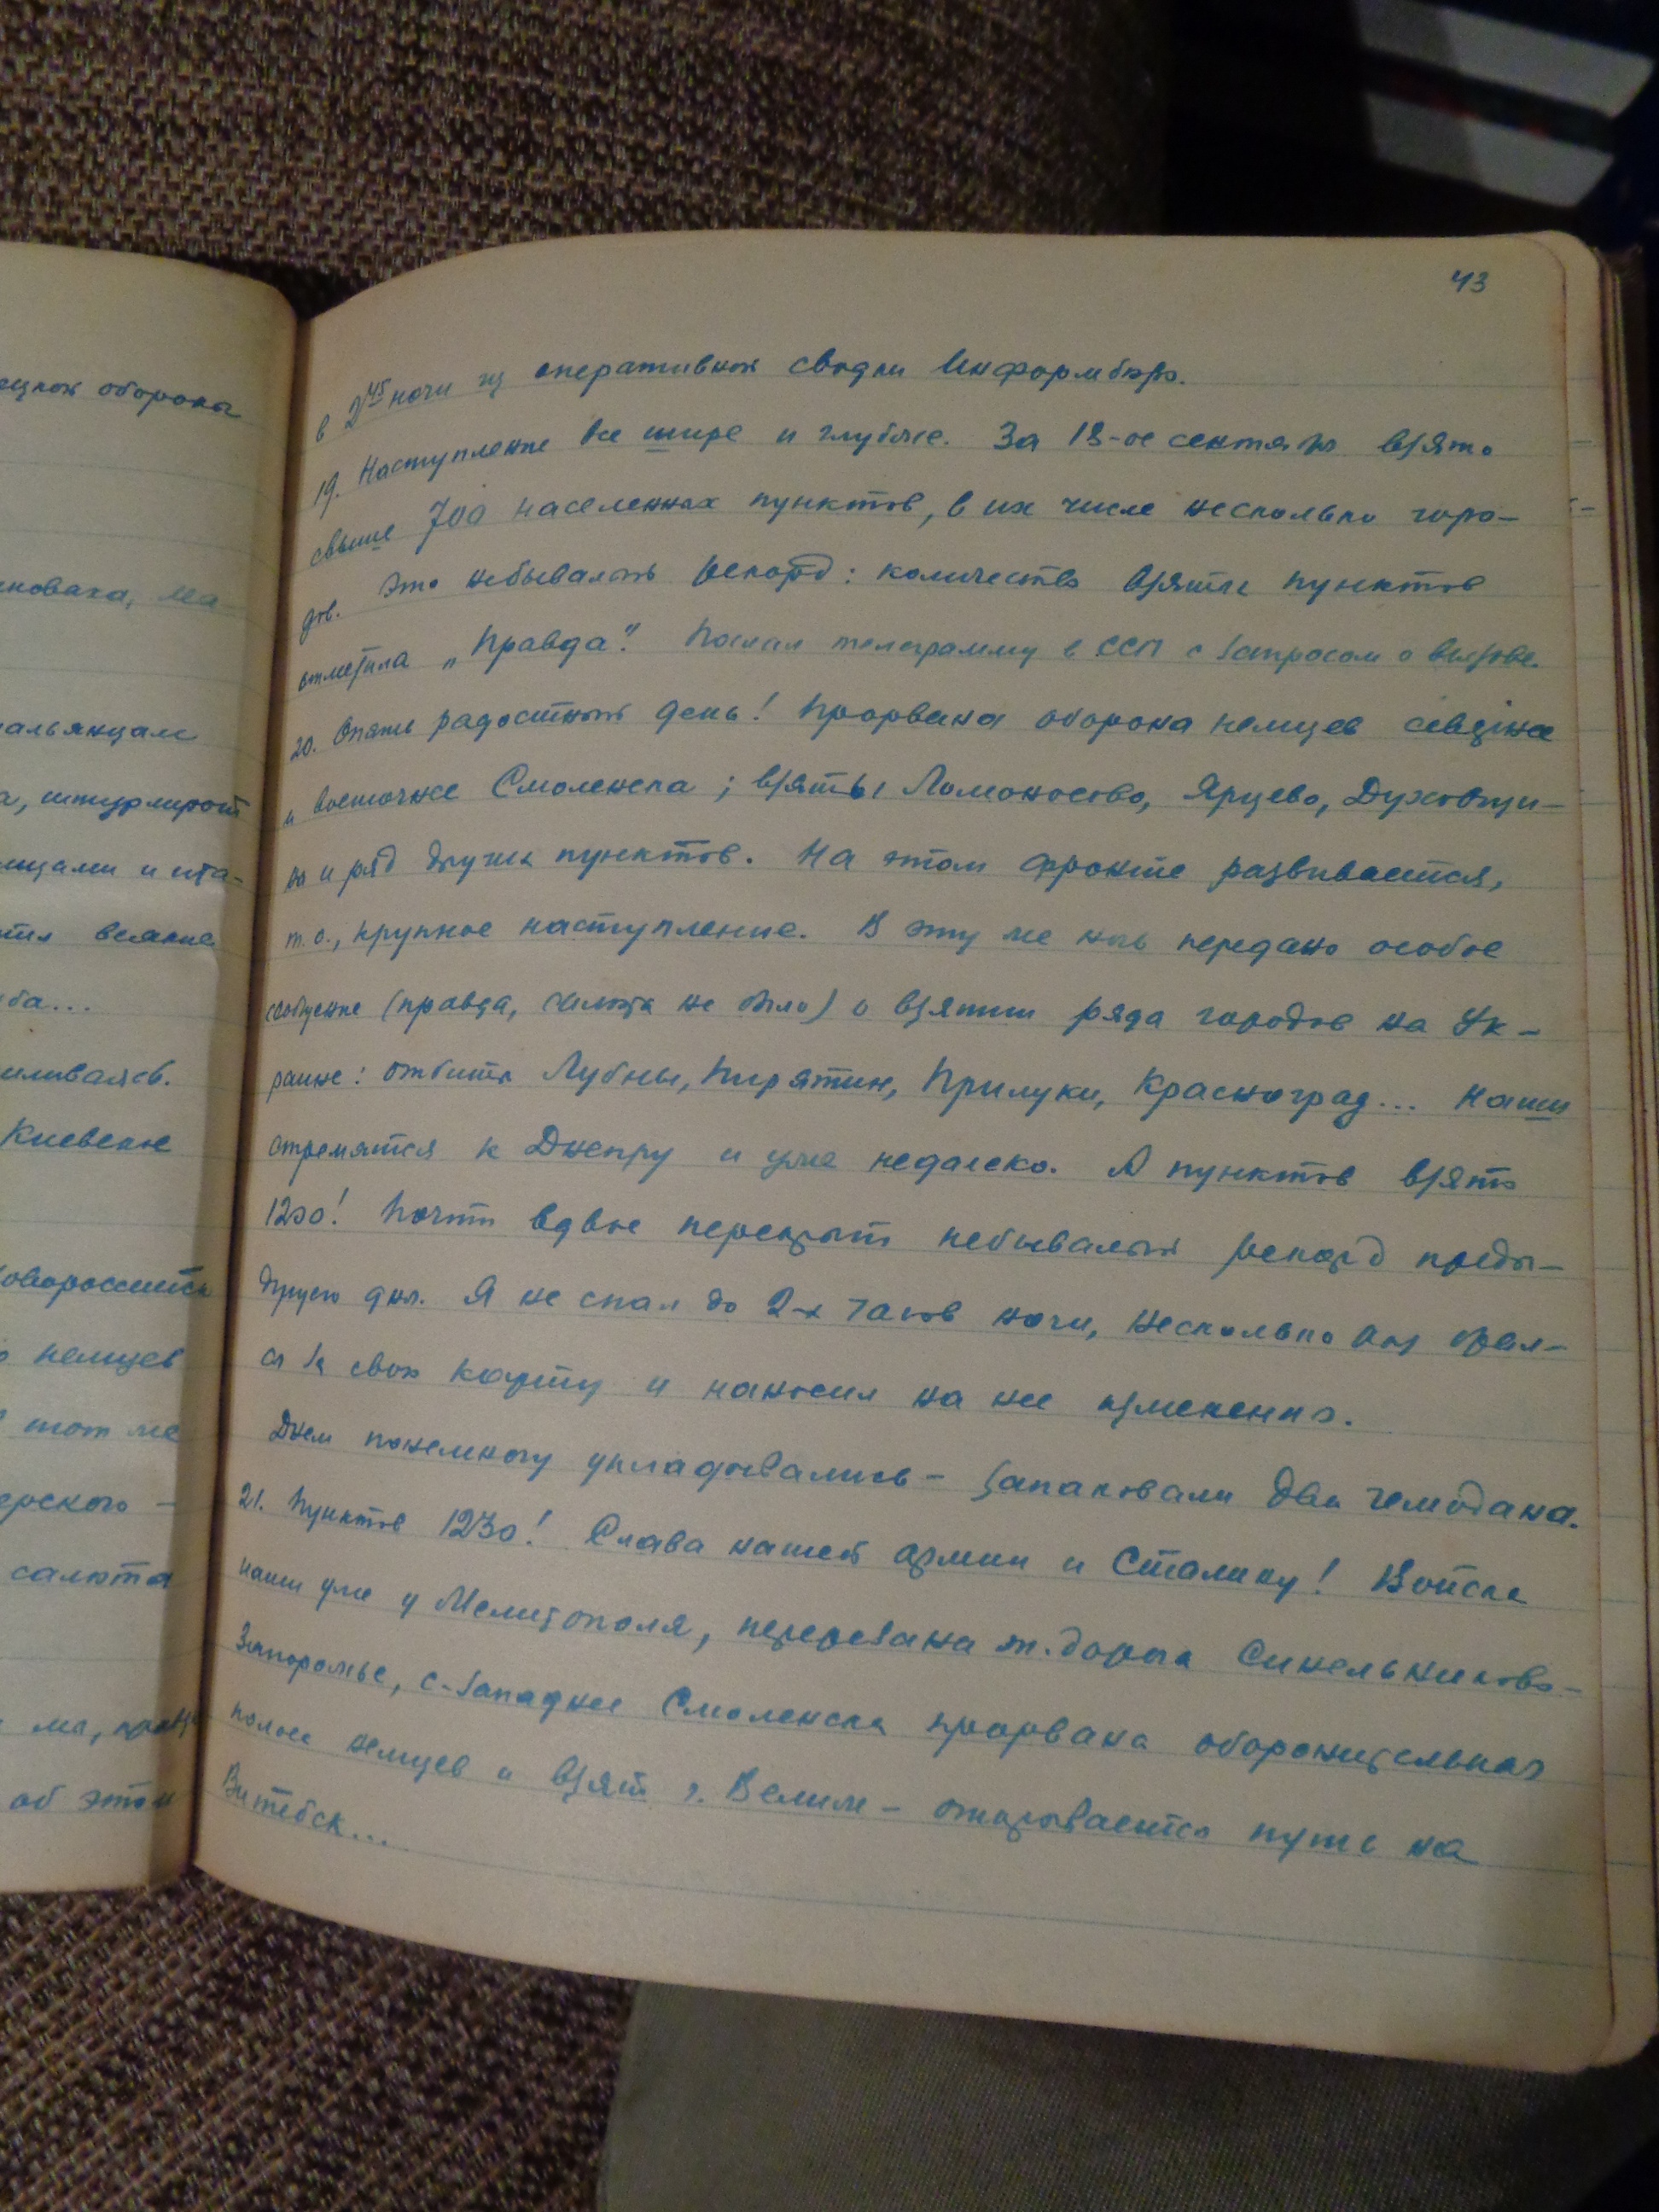 ецкой оборон
новаха, Ма-
альянцам
а, штурмуют
ицами и ита-
тся всякие
ба...
иливаясь.
Киевское
овороссийск
о немцев
в тот же
ерского –
салюта
ма, правда
об этом
43
в 2 45 ночи из оперативной сводки Информбюро.
19. Наступление все шире и глубже. За 18-ое сентября взято
свыше 700 населенных пунктов, в их числе несколько горо-
дов. Это небывалый рекорд: количество взятых пунктов
отметила „Правда". Послал телеграмму в ССП с запросом о вызове.
20. Опять радостный день! Прорвана оборона немцев севернее
и восточнее Смоленска; взяты Ломоносово, Ярцево, Духовщи-
на и ряд других пунктов. На этом фронте развивается,
т. о., крупное наступление. В эту же ночь передано особое
сообщение (правда, салюта не было) о взятии ряда городов на Ук-
раине: отбиты Лубны, Пирятин, Прилуки, Красноград... Наши
стремятся к Днепру и уже недалеко. А пунктов взято
1200! Почти вдвое перекрыт небывалый рекорд преды-
дущего дня. Я не спал до 2-х часов ночи, несколько раз брал-
ся за свою карту и наносил на нее изменения.
Днем понемногу укладывались – запаковали два чемодана.
21. Пунктов 1230! Слава нашей армии и Сталину! Войска
наши уже у Мелитополя, перерезана ж. дорога Синельниково-
Запорожье, с-западнее Смоленска прорвана оборонительная
полоса немцев и взят г. Велиж – открывается путь на
Витебск...